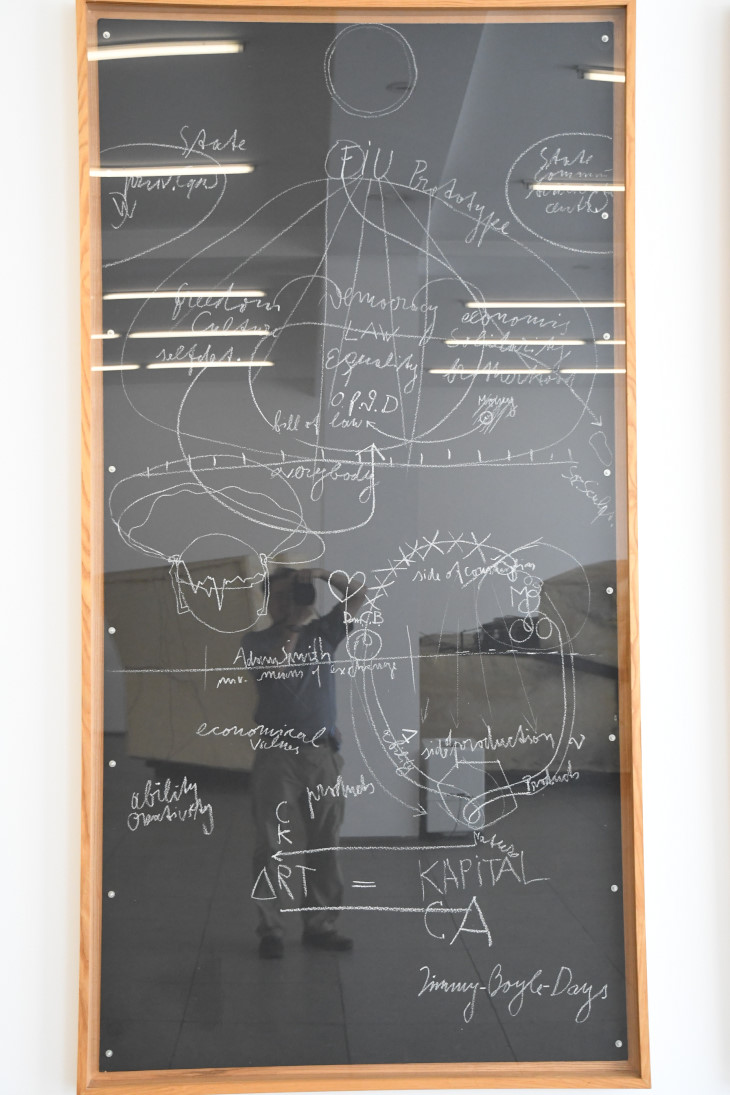 State
State
FiU Prototype
Common
centre
freedom
Culture
selfdet.
Democracy
LAW
Equality
economic
Solidarity
brotherhood
O.P.I.D
Money
bill of law
everybody
side of
Dem. C.B
Adam Smith
means of exchange
economical
values
ability
side production
Products
ability
creativity
products
C
K
Nature
ART = KAPiTAL
CA
Jimmy-Boyle-Days